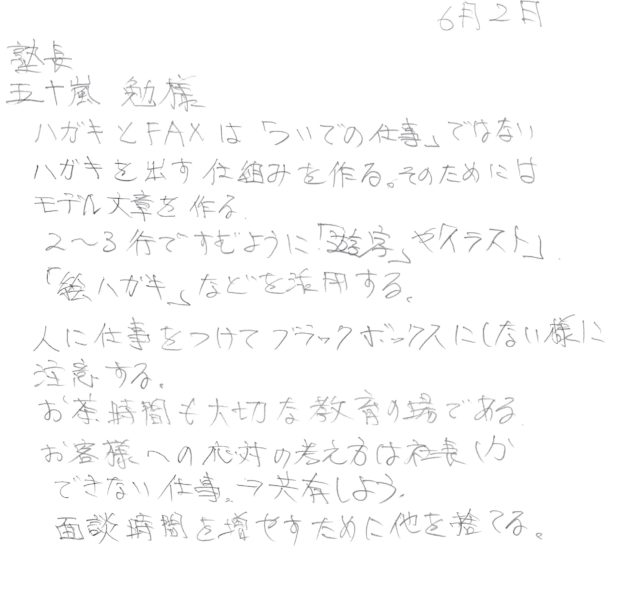 6月2日
塾長
五十嵐 勉様
ハガキとFAXは「ついでの仕事」ではない
ハガキを出す仕組みを作る。そのためには
モデル文章を作る
2〜3行ですむように「遊字」や「イラスト」
「絵ハガキ」などを活用する。
人に仕事をつけてブラックボックスにしない様に
注意する。
お茶時間も大切な教育の場である
お客様への応対の考え方は社長しか
できない仕事。→共有しよう。
面談時間を増やすために他を捨てる。